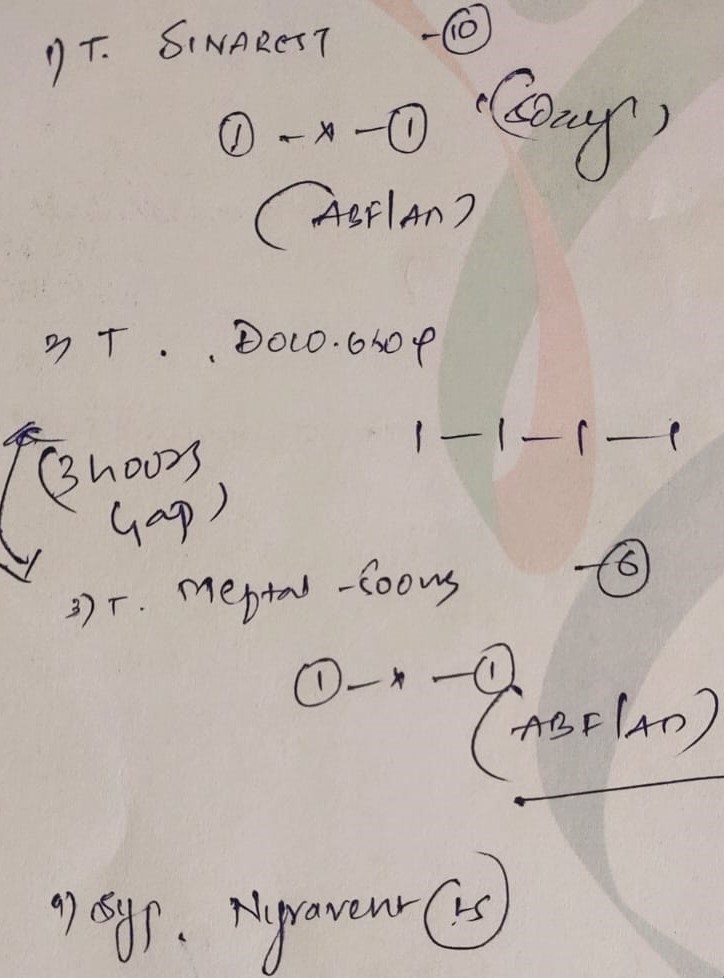 1) T. SINAREST -10
1 - x - 1 (5 Days)
(ABF/AD)
2) T. DOLO.650 P
1 - 1 - 1 - 1
(3 hours
Gap)
3) T. Meftal -500mg -6
1 - x - 1
(ABF/AD)
4) Syp.